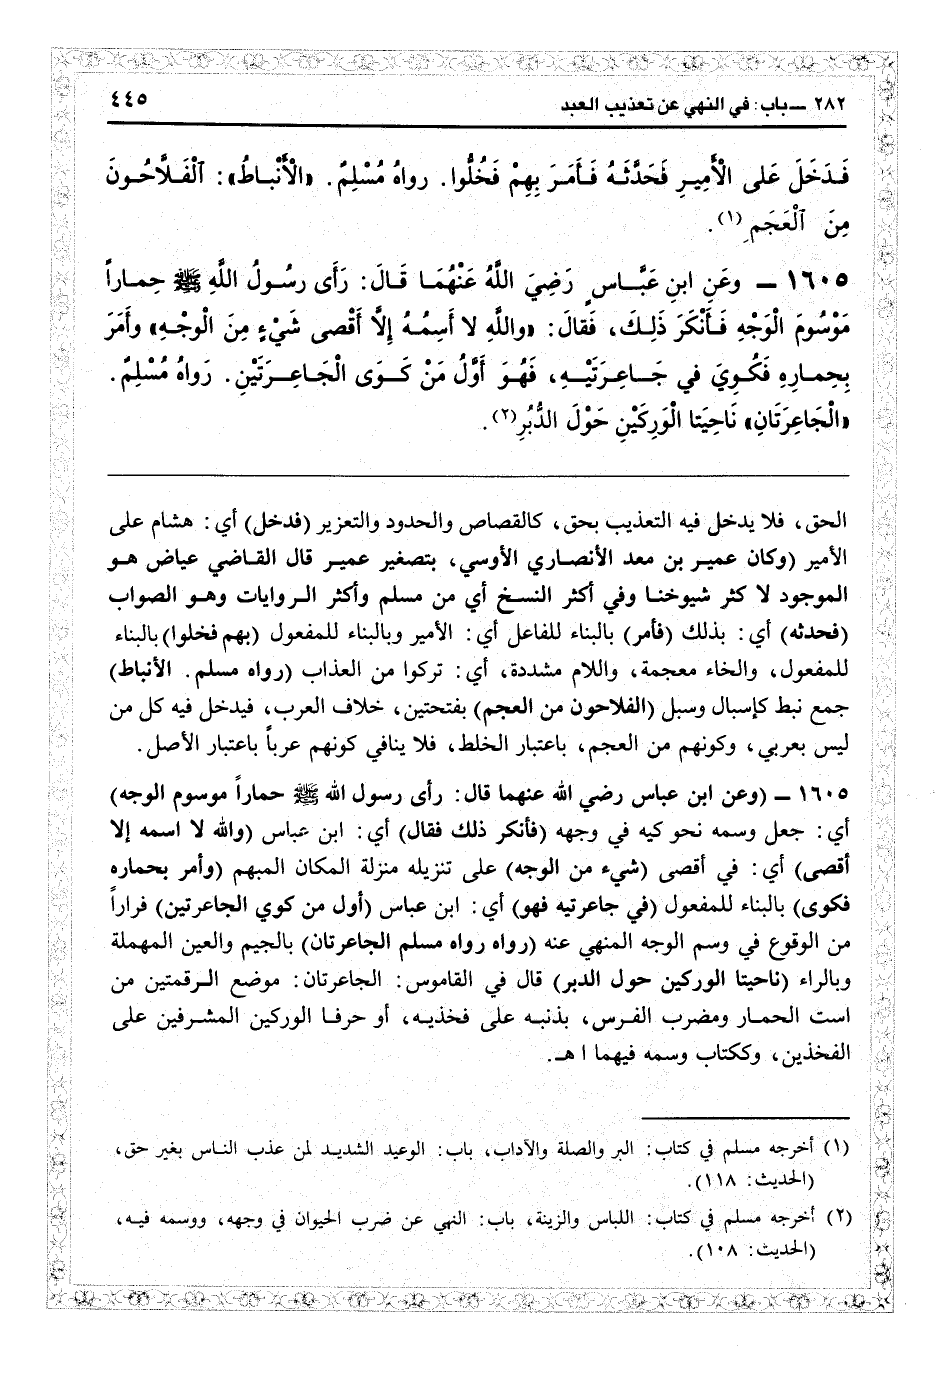 ٢٨٢ ــ باب: في النهي عن تعذيب العبد ٤٤٥
فَدَخَلَ عَلى الْأَمِيرِ فَحَدَّثَهُ فَأَمَرَ بِهِمْ فَخُلُّوا. رواهُ مُسْلِمٌ. «الْأَنْباطُ»: ٱلْفَلاَّحُونَ
مِنَ ٱلْعَجَمِ(١).
١٦٠٥ ــ وعَنِ ابنِ عَبَّاسٍ رَضِيَ اللَّهُ عَنْهُمَا قَالَ: رَأَى رسُولُ اللَّهِ ﷺ حِماراً
مَوْسُومَ الْوَجْهِ فَأَنْكَرَ ذَلِكَ، فَقالَ: «واللَّهِ لا أَسِمُهُ إلَّا أَقْصى شَيْءٍ مِنَ الْوجْهِ» وأَمَرَ
بِحِمارِهِ فَكُوِيَ في جَاعِرَتَيْهِ، فَهُوَ أَوَّلُ مَنْ كَوَى الْجَاعِرَتَيْنِ. رَواهُ مُسْلِمٌ.
«الْجَاعِرَتَانِ» نَاحِيَتا الْوَرِكَيْنِ حَوْلَ الدُّبُرِ(٢).
الحق، فلا يدخل فيه التعذيب بحق، كالقصاص والحدود والتعزير (فدخل) أي: هشام على
الأمير (وكان عمير بن معد الأنصاري الأوسي، بتصغير عمير قال القاضي عياض هو
الموجود لا كثر شيوخنا وفي أكثر النسخ أي من مسلم وأكثر الروايات وهو الصواب
(فحدثه) أي: بذلك (فأمر) بالبناء للفاعل أي: الأمير وبالبناء للمفعول (بهم فخلوا) بالبناء
للمفعول، والخاء معجمة، واللام مشددة، أي: تركوا من العذاب (رواه مسلم. الأنباط)
جمع نبط كإسبال وسبل (الفلاحون من العجم) بفتحتين، خلاف العرب، فيدخل فيه كل من
ليس بعربي، وكونهم من العجم، باعتبار الخلط، فلا ينافي كونهم عرباً باعتبار الأصل.
١٦٠٥ ــ (وعن ابن عباس رضي الله عنهما قال: رأى رسول الله ﷺ حماراً موسوم الوجه)
أي: جعل وسمه نحو كيه في وجهه (فأنكر ذلك فقال) أي: ابن عباس (والله لا اسمه إلا
أقصى) أي: في أقصى (شيء من الوجه) على تنزيله منزلة المكان المبهم (وأمر بحماره
فكوى) بالبناء للمفعول (في جاعرتيه فهو) أي: ابن عباس (أول من كوي الجاعرتين) فراراً
من الوقوع في وسم الوجه المنهي عنه (رواه رواه مسلم الجاعرتان) بالجيم والعين المهملة
وبالراء (ناحيتا الوركين حول الدبر) قال في القاموس: الجاعرتان: موضع الرقمتين من
است الحمار ومضرب الفرس، بذنبه على فخذيه، أو حرفا الوركين المشرفين على
الفخذين، وككتاب وسمه فيهما ا هـ.
(١) أخرجه مسلم في كتاب: البر والصلة والآداب، باب: الوعيد الشديد لمن عذب الناس بغير حق،
(الحديث: ١١٨).
(٢) أخرجه مسلم في كتاب: اللباس والزينة، باب: النهي عن ضرب الحيوان في وجهه، ووسمه فيه،
(الحديث: ١٠٨).